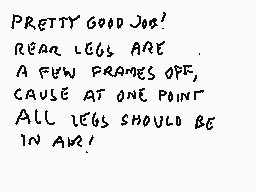 PRETTY GOOD JOB!
REAR LEGS ARE
A FEW FRAMES OFF,
CAUSE AT ONE POINT
ALL LEGS SHOULD BE
IN AIR!